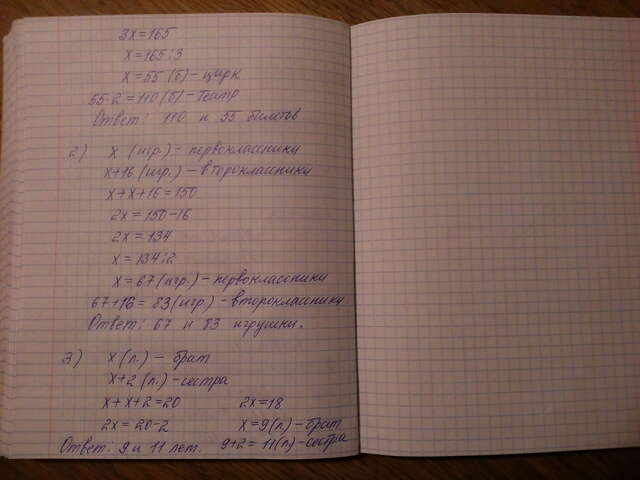 3x=165
x=165:3
x=55 (б) - цирк
55·2=110 (б) - театр
Ответ: 110 и 55 билетов
2) x (игр.) - первоклассники
x+16 (игр.) - второклассники
x+x+16=150
2x=150-16
2x=134
x=134:2
x=67 (игр.) - первоклассники
67+16=83 (игр.) - второклассники
Ответ: 67 и 83 игрушки.
3) x (л.) - брат
x+2 (л.) - сестра
x+x+2=20 2x=18
2x=20-2 x=9 (л) - брат
Ответ. 9 и 11 лет. 9+2=11 (л) - сестра